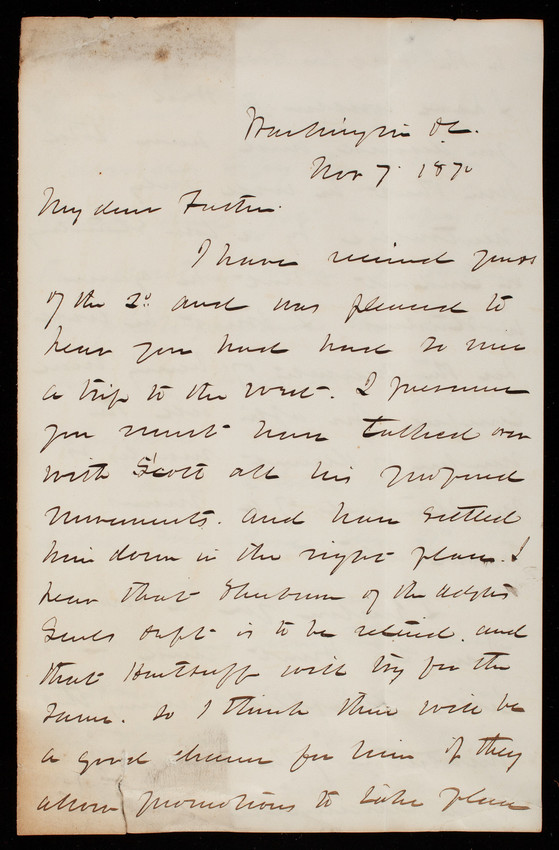 Washington DC.
Nov 7. 1870
My dear Father.
I have received yours
of the 2d. and was pleased to
hear you had had so nice
a trip to the west. I presume
you must have talked over
with Scott all his proposed
movements. and have settled
him down in the right place. I
hear that of the Adjts
Genls Dept is to be retired. and
that Hartsuff will try for the
same. so I think there will be
a good chance for him if they
allow promotions to take place